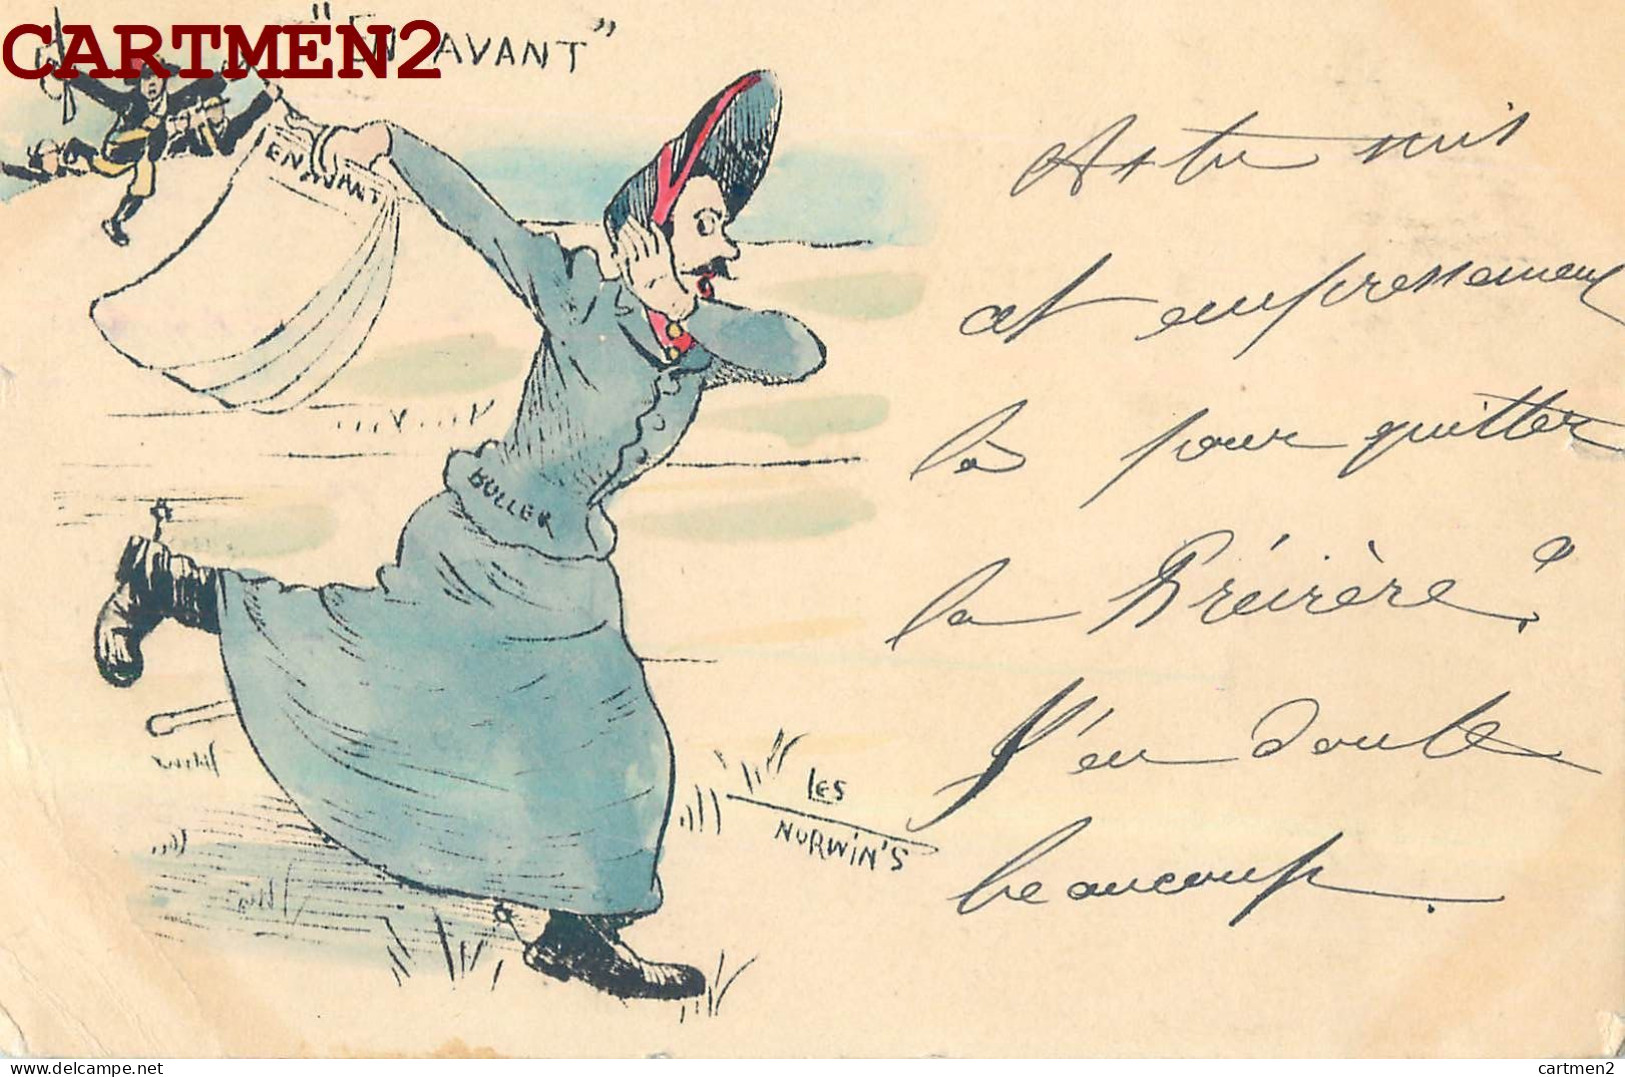 CARTMEN2
"EN AVANT"
EN AVANT
BULLER
LES
NORWIN'S
As tu mis
cet empressement
là pour quitter
la Préirère?
J'en doute
beaucoup.
delcampe.net
cartmen2